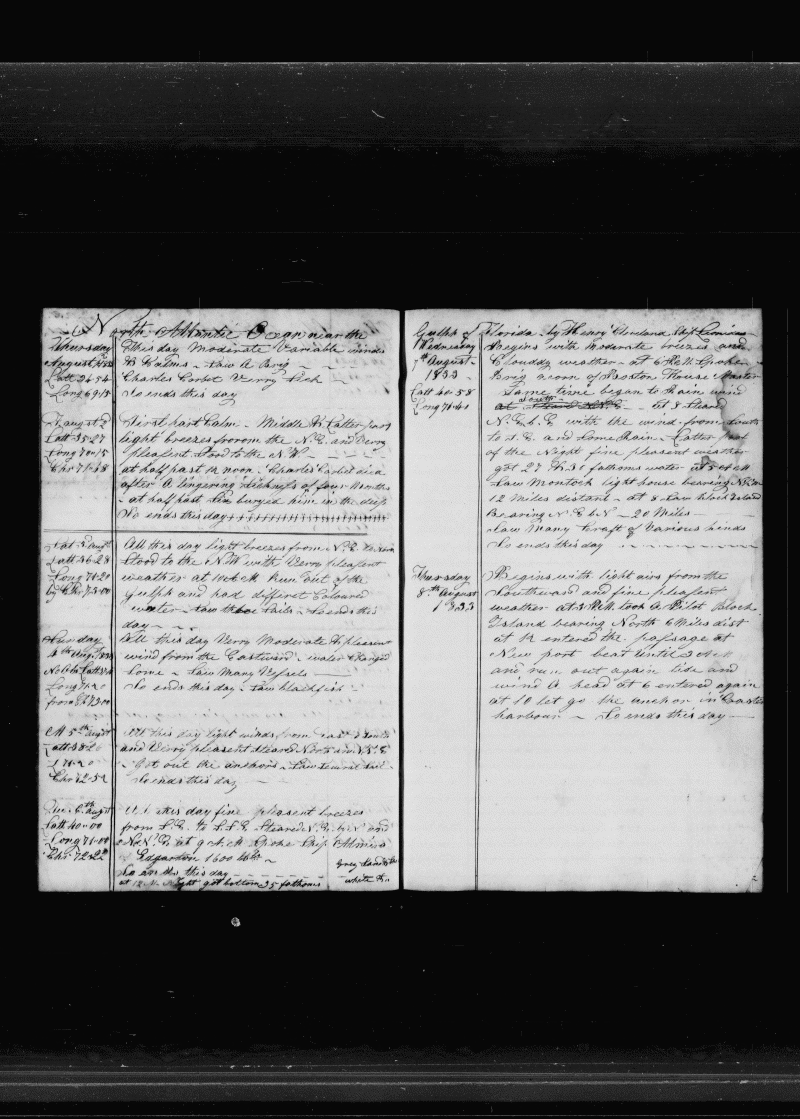 North Atlantic Ocean near the
Thursday This day Moderate Variable winds
August 1st 1833 & Calms - Saw A Brig
Latt 34-54 Charles Corbet Verry Sick
Long 69-15 So ends this day
F August 2 First part Calm - Middle & Latter part
Latt 35-27 light breezes from the N.E. and Verry
Long 70-15 pleasent Stood to the N.W.
Chr 71-38 at half past 12 noon - Charles Corbet died
after A lingering sickness of four Months
- at half past Six buryed him in the deep
So ends this day
Sat 3d augst All this day light breezes from N.E.
Latt 36-28 Stood to the N.W. with Verry pleasent
Long 71-20 weather at 10 A.M. Run out of the
by Chr 73-00 Gulph and had different Coloured
water - Saw three Sails - So ends this
day
Sunday All this day Verry Moderate & pleasent
4th Augst 1833 wind from the Eastward - water Changed
No Obs Latt Some - Saw Many Vessels
Long 71-20 So ends this day - Saw blackfish
from Chr 73-00
M 5th augst All this day light winds from
Latt 38-2 and Verry pleasent Steard North and N.N.E
71-20 - Got out the anchors - Saw Several Sail
Chr 72-52 So ends this day
Tue. 6th augst All this day fine pleasent breezes
Latt 40-00 from S.E. to S.S.E. Steared N.E. by N and
Long 71-00 N.N.E. at 9 A.M. Spoke Ship Almira
Chr 72-22 Edgarton 1600 bbls
So ends this day Grey Sand
at 12 M. Night got bottom 35 fathoms white &c
Gulph of Florida - by Henry Cleveland Ship
Wednesday Begins with Moderate breezes and
7th August Clouddy weather - at 6 P.M. Spoke
1833 Brig acorn of Boston House Master
Latt 40-58 Same time began to Rain wind
Long 71-40 at South - At 8 Steard
N.E. b. E with the wind from South
to S.E. and Some Rain - Latter part
of the Night fine pleasent weather
got 27 & 30 fathoms water at 5 A.M
Saw Montock light house bearing N.W.
12 Miles distant - at 8 Saw Block Island
Bearing N.E. b N - 20 Miles
Saw Many Craft of Various kinds
So ends this day
Thursday Begins with light airs from the
8th August Southward and fine pleasent
1833 weather at 3 P.M. took A Pilot Block
Island bearing North 6 Miles dist
at 12 entered the passage at
New port beat until 2 A.M
and run out again tide and
wind A head at 6 entered again
at 10 let go the anchor in Coaster
harbour - So ends this day